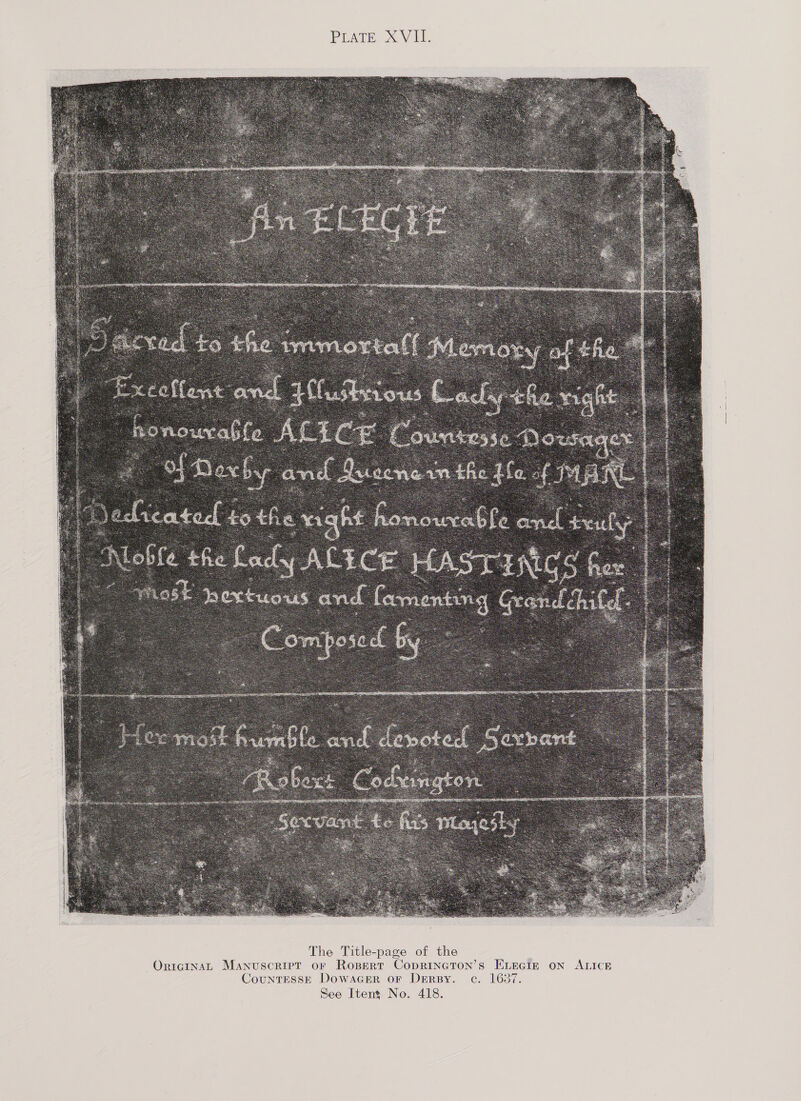 PLATE XVII.
An ELEGIE
Sacred to the immortall Memory of the
Excellent and Illustrious Lady the right
honourable ALICE Countesse Dowager
Of Derby and Queene in the Ile of MAN
Dedicated to the right honourable and truly
Noble the Lady ALICE HASTINGS her
most vertuous and lamenting Grandchild.
Composed by
Her most humble and devoted Servant
Robert Codrington
Servant to his Majesty
The Title-page of the
ORIGINAL MANUSCRIPT OF ROBERT CODRINGTON'S ELEGIE ON ALICE
COUNTESSE DOWAGER OF DERBY. c. 1637.
See Item No. 418.